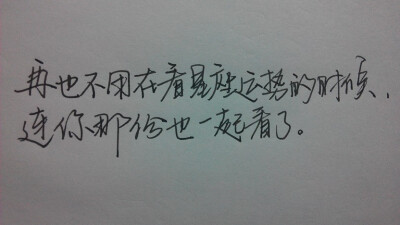 再也不用在看星座运势的时候，
连你那份也一起看了。